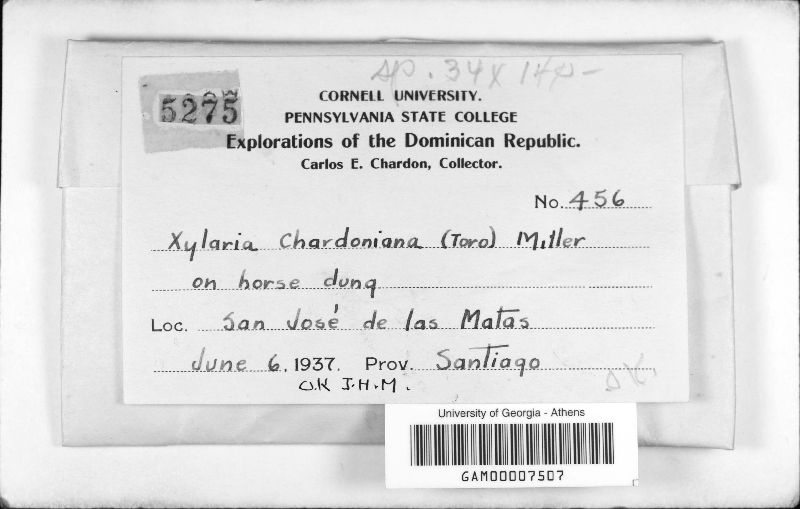 sp. 34 x 14µ-
5275
CORNELL UNIVERSITY.
PENNSYLVANIA STATE COLLEGE
Explorations of the Dominican Republic.
Carlos E. Chardon, Collector.
No. 456
Xylaria Chardoniana (Toro) Miller
on horse dung
Loc. San José de las Matas
June 6, 1937. Prov. Santiago
O.K J.H.M.
University of Georgia - Athens
GAM00007507